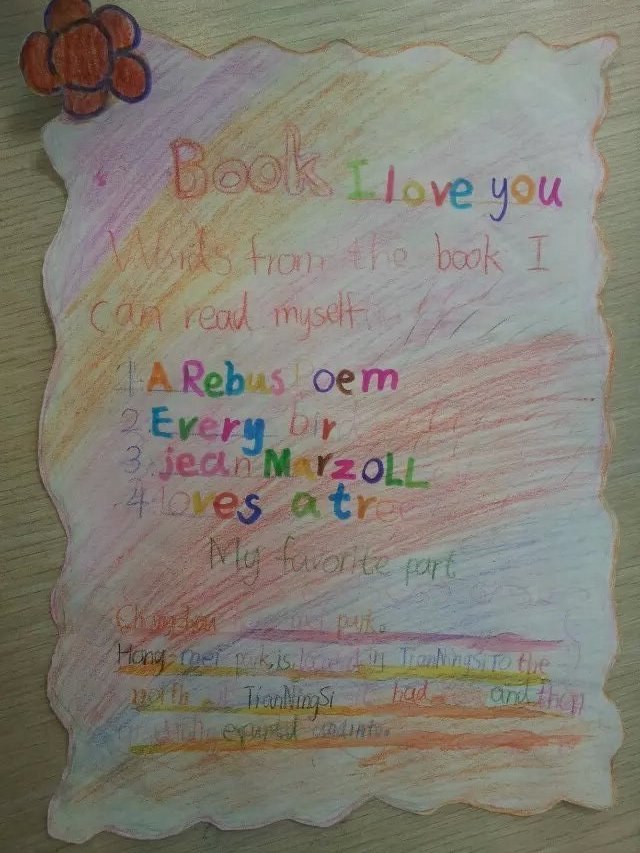 Book I love you
Words from the book I
can read myself
1 A Rebus Poem
2 Every bird
3. jean MarzoLL
4 loves a tree
My favorite part
Changzhou park.
Hong mei park is located in TianNingSi To the
north TianNingSi had and then
equipted